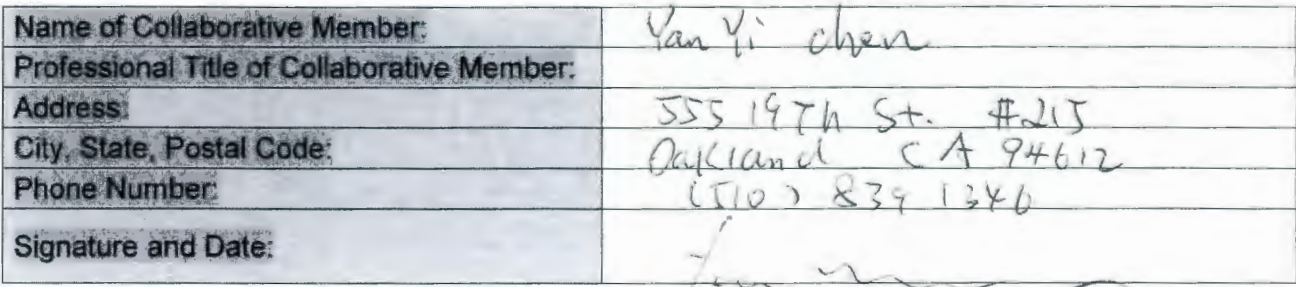 Name of Collaborative Member: Yan Yi chen
Professional Title of Collaborative Member:
Address: 555 19Th St. #215
City, State, Postal Code: Oakland CA 94612
Phone Number: (510) 839 1346
Signature and Date: